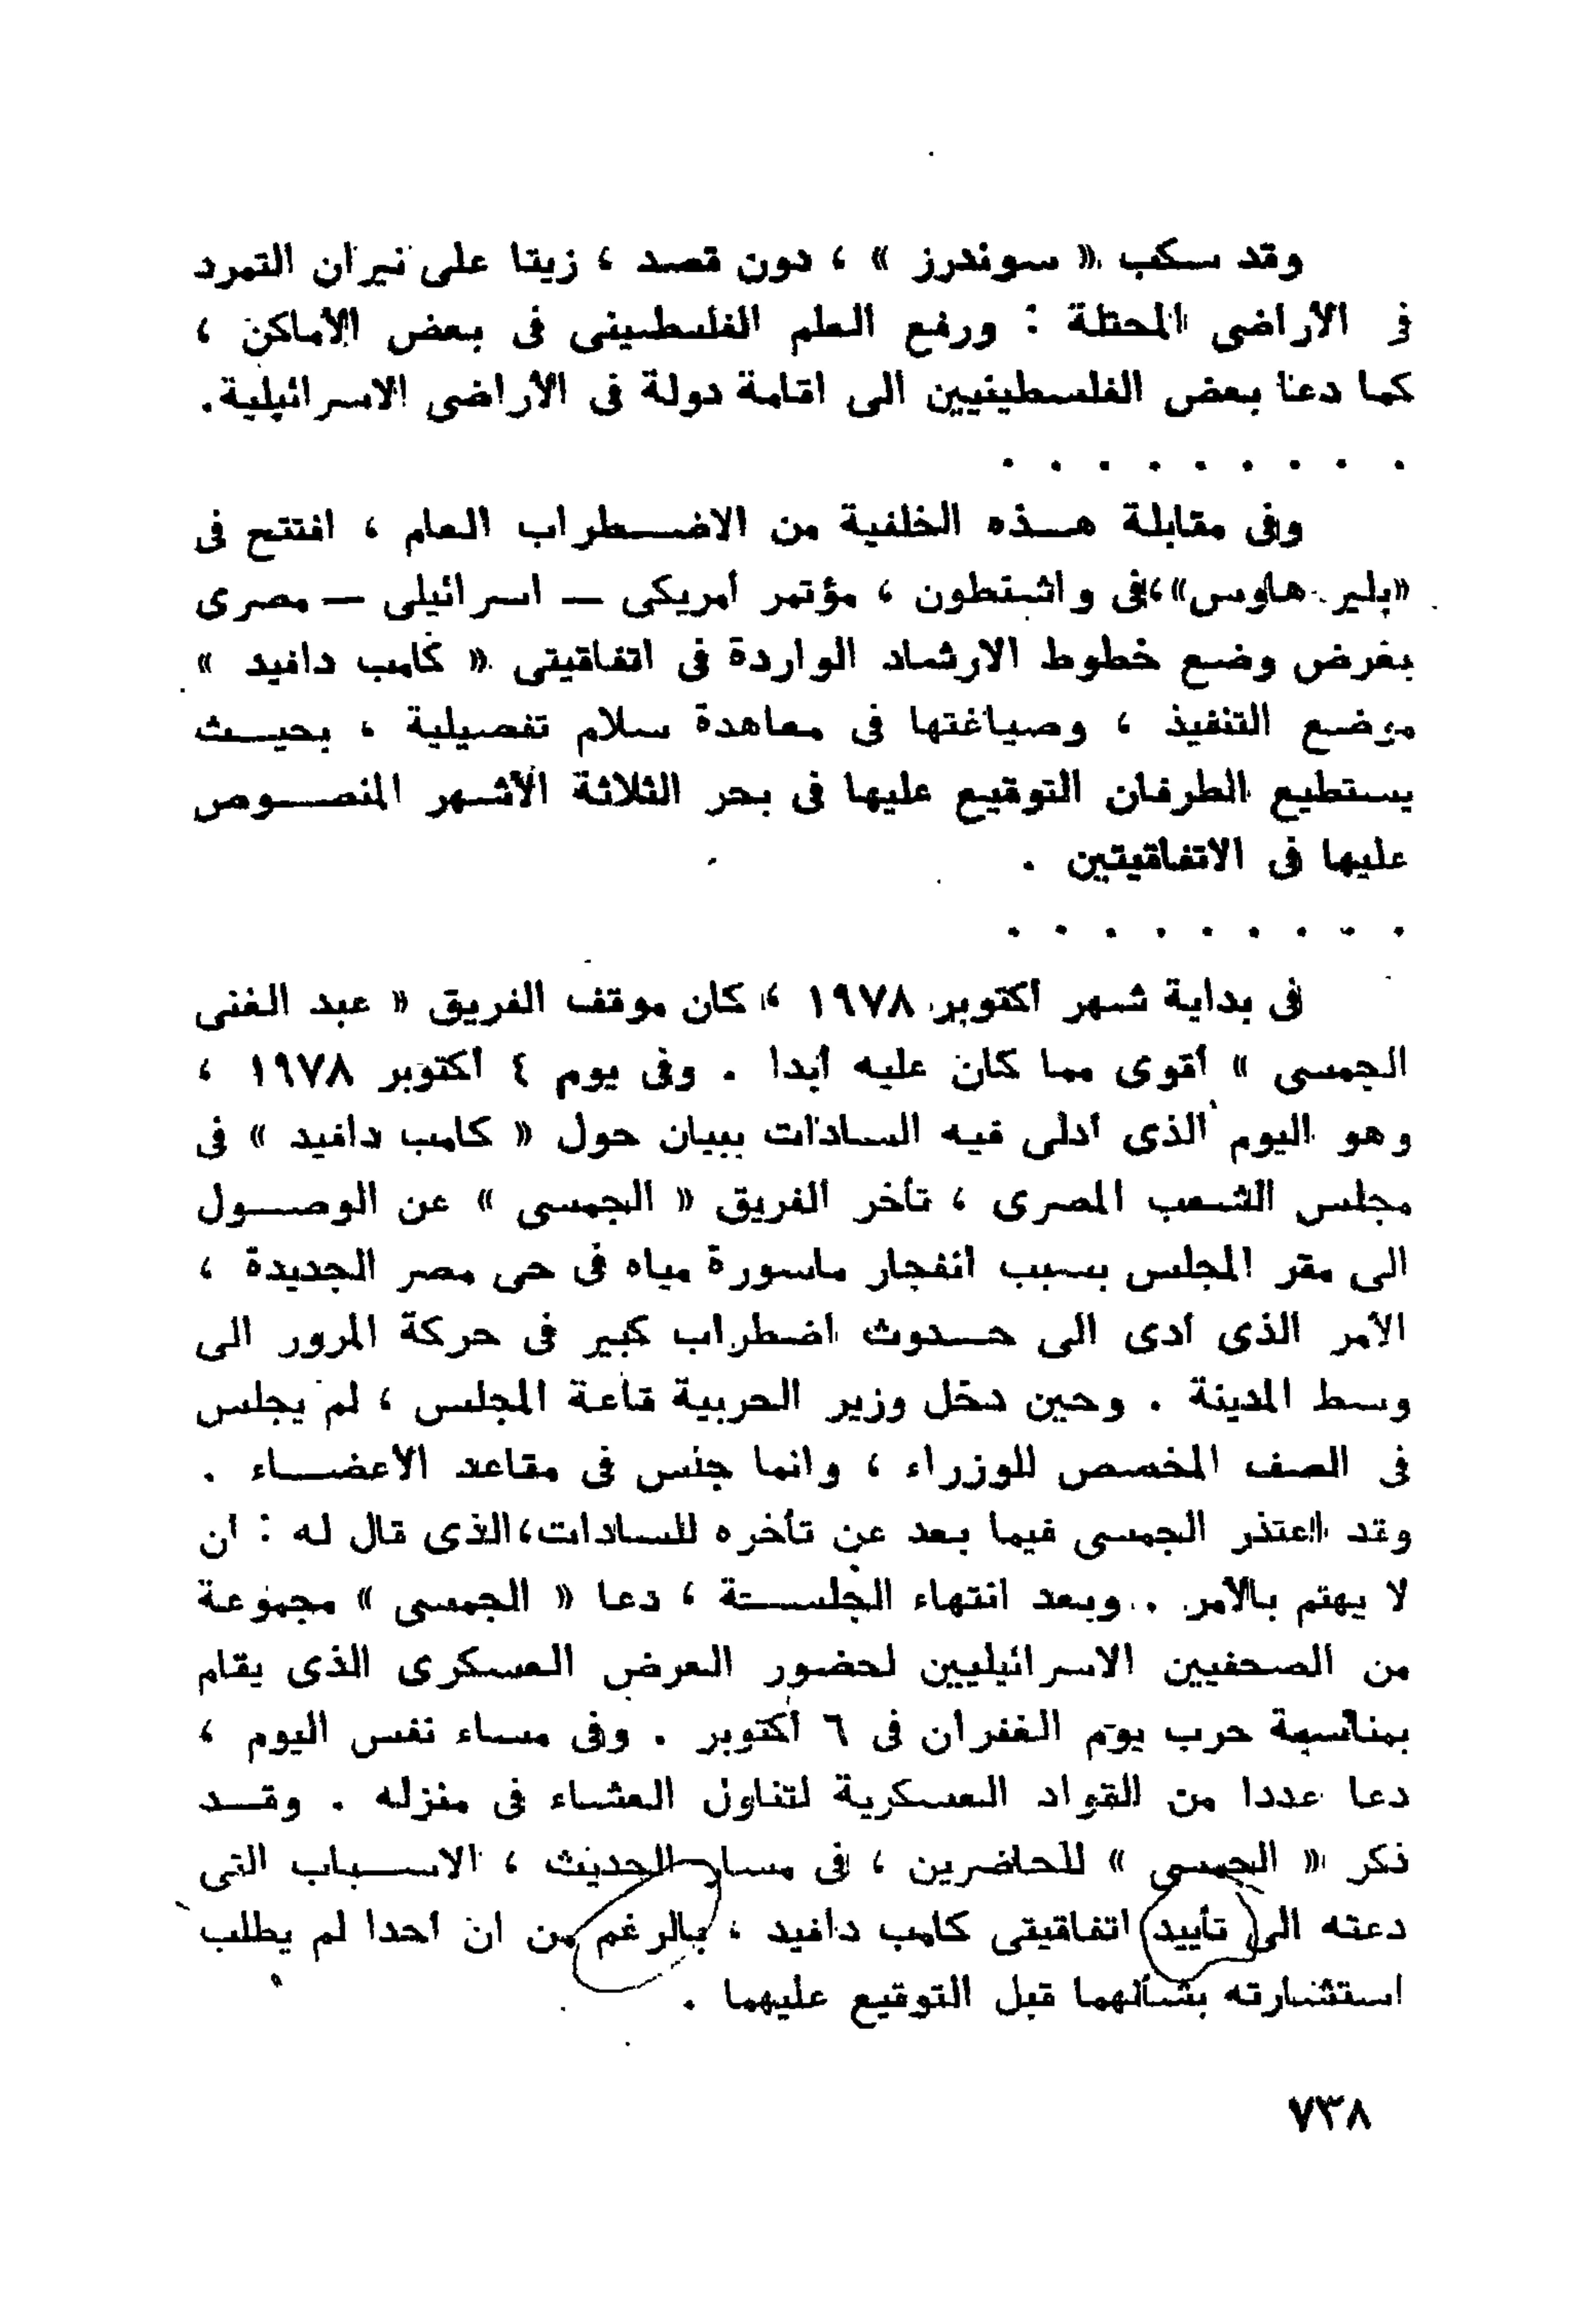 وقد سكب « سوندرز » ، دون قصد ، زيتا على نيران التمرد
فى الأراضى المحتلة : ورفع العلم الفلسطينى فى بعض الأماكن ،
كما دعا بعض الفلسطينيين الى اقامة دولة فى الأراضى الاسرائيلية.
. . . . . . . . .
وفى مقابلة هـــذه الخلفية من الاضـــطراب العام ، افتتح فى
«بلير هاوس»،فى واشنطون ، مؤتمر أمريكى – اسرائيلى – مصرى
بغرض وضع خطوط الارشاد الواردة فى اتفاقيتى « كامب دافيد »
موضع التنفيذ ، وصياغتها فى معاهدة سلام تفصيلية ، بحيـــث
يستطيع الطرفان التوقيع عليها فى بحر الثلاثة الأشهر المنصـــوص
عليها فى الاتفاقيتين .
. . . . . . . . .
فى بداية شهر أكتوبر ١٩٧٨ ، كان موقف الفريق « عبد الغنى
الجمسى » أقوى مما كان عليه أبدا . وفى يوم ٤ أكتوبر ١٩٧٨ ،
وهو اليوم الذى أدلى فيه السادات ببيان حول « كامب دافيد » فى
مجلس الشعب المصرى ، تأخر الفريق « الجمسى » عن الوصـــول
الى مقر المجلس بسبب انفجار ماسورة مياه فى حى مصر الجديدة ،
الأمر الذى أدى الى حـــدوث اضطراب كبير فى حركة المرور الى
وسط المدينة . وحين دخل وزير الحربية قاعة المجلس ، لم يجلس
فى الصف المخصص للوزراء ، وانما جلس فى مقاعد الاعضـــاء .
وقد اعتذر الجمسى فيما بعد عن تأخره للسادات،الذى قال له : ان
لا يهتم بالأمر . وبعد انتهاء الجلســـة ، دعا « الجمسى » مجموعة
من الصحفيين الاسرائيليين لحضور العرض العسكرى الذى يقام
بمناسبة حرب يوم الغفران فى ٦ أكتوبر . وفى مساء نفس اليوم ،
دعا عددا من القواد العسكرية لتناول العشاء فى منزله . وقـــد
ذكر « الجمسى » للحاضرين ، فى مسار الحديث ، الاســـباب التى
دعته الى تأييد اتفاقيتى كامب دافيد ، بالرغم من ان احدا لم يطلب
استشارته بشأنهما قبل التوقيع عليهما .
٧٣٨